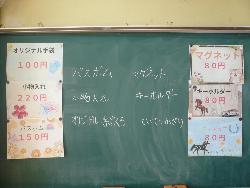 オリジナル手袋
100円
小物入れ
220円
バスボム
150円
バスボム
小物入れ
オリジナル手袋
マグネット
キーホルダー
マグネット
80円
キーホルダー
80円
80円